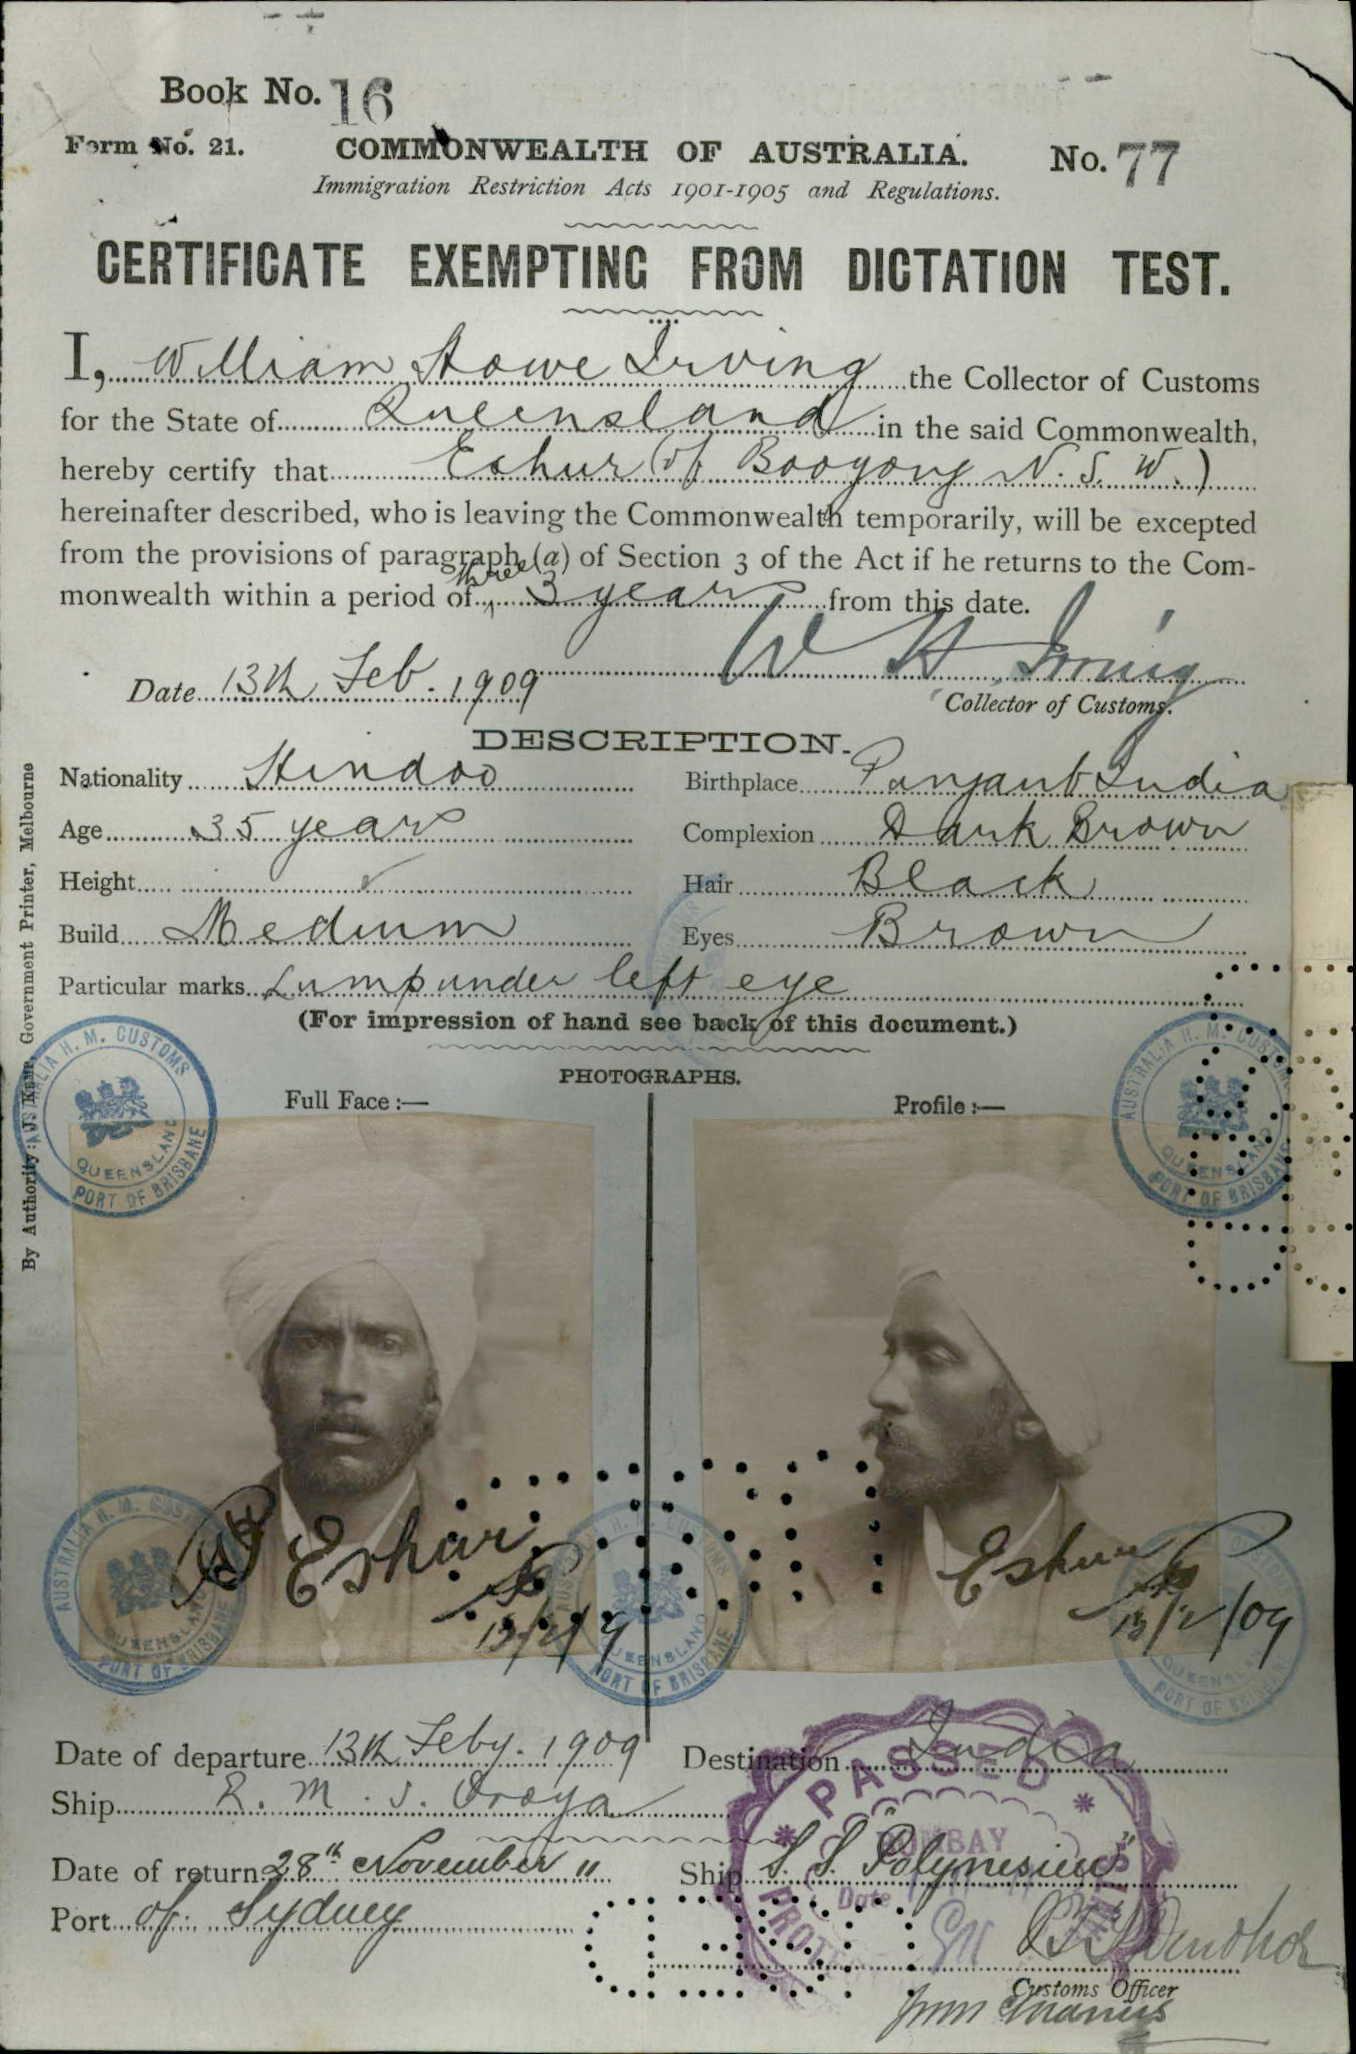 Book No. 16
Form No. 21. COMMONWEALTH OF AUSTRALIA. No. 77
Immigration Restriction Acts 1901-1905 and Regulations.
CERTIFICATE EXEMPTING FROM DICTATION TEST.
I, William Howe Irving the Collector of Customs
for the State of Queensland in the said Commonwealth,
hereby certify that Eshur (of Booyong N.S.W.)
hereinafter described, who is leaving the Commonwealth temporarily, will be excepted
from the provisions of paragraph (a) of Section 3 of the Act if he returns to the Com-
three
monwealth within a period of 3 years from this date.
W H Irving
Date 13th Feb. 1909
Collector of Customs.
DESCRIPTION.
Nationality Hindoo Birthplace Panjaub India
Age 35 years Complexion Dark Brown
Height Hair Black
Build Medium Eyes Brown
Particular marks Lump under left eye
(For impression of hand see back of this document.)
PHOTOGRAPHS.
Full Face:— Profile:—
By Authority: J. Kemp, Government Printer, Melbourne
AUSTRALIA H. M. CUSTOMS QUEENSLAND PORT OF BRISBANE
AUSTRALIA H. M. CUSTOMS QUEENSLAND PORT OF BRISBANE
Eshur Eshur
13/2/9 13/2/09
AUSTRALIA H. M. CUSTOMS QUEENSLAND PORT OF BRISBANE
AUSTRALIA H. M. CUSTOMS QUEENSLAND PORT OF BRISBANE
QUEENSLAND PORT OF BRISBANE
Date of departure 13th Feby. 1909 Destination India
Ship R. M. S. Oroya
PASSED
BOMBAY
Date
Date of return 28th November 11 Ship S. S. "Polynesien"
Port of Sydney
Customs Officer